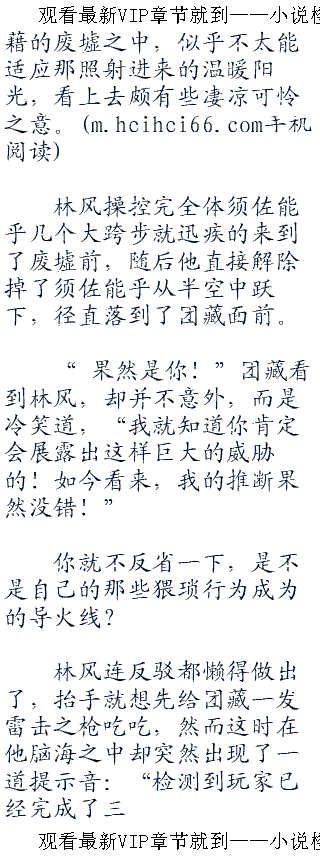 观看最新VIP章节就到——小说检
藉的废墟之中，似乎不太能
适应那照射进来的温暖阳
光，看上去颇有些凄凉可怜
之意。(m.hcihci66.com手机
阅读)
林风操控完全体须佐能
乎几个大跨步就迅疾的来到
了废墟前，随后他直接解除
掉了须佐能乎从半空中跃
下，径直落到了团藏面前。
“ 果然是你！”团藏看
到林风，却并不意外，而是
冷笑道，“我就知道你肯定
会展露出这样巨大的威胁
的！如今看来，我的推断果
然没错！”
你就不反省一下，是不
是自己的那些猥琐行为成为
的导火线？
林风连反驳都懒得做出
了，抬手就想先给团藏一发
雷击之枪吃吃，然而这时在
他脑海之中却突然出现了一
道提示音：“检测到玩家已
经完成了三
观看最新VIP章节就到——小说检